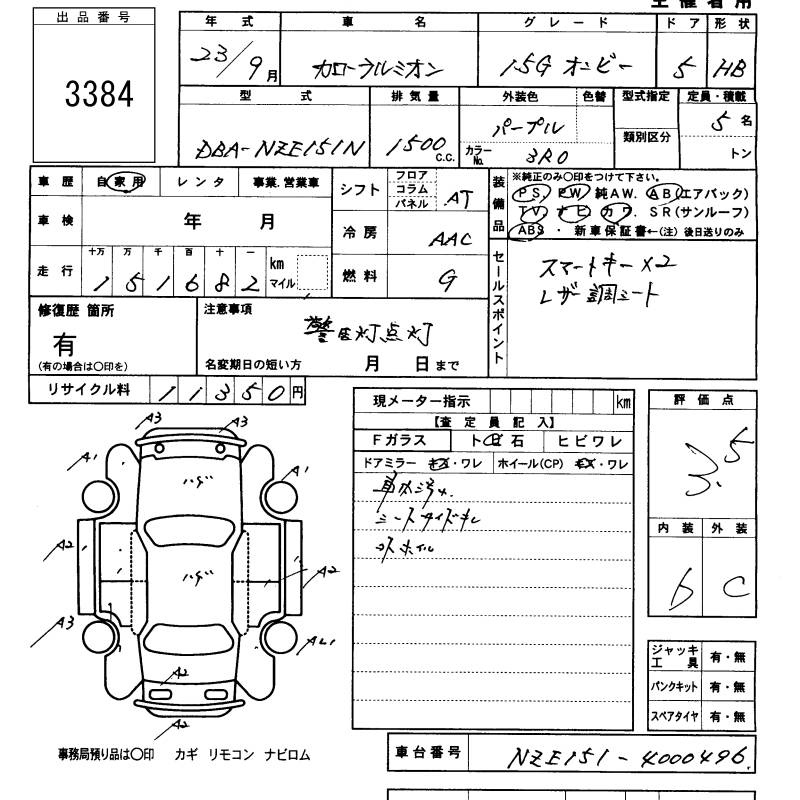 主催者用
出品番号
3384
年式 車名 グレード ドア 形状
23/9月 カローラルミオン 1.5G オンビー 5 HB
型式 排気量 外装色 色替 型式指定 定員・積載
DBA-NZE151N 1500 c.c. パープル 類別区分 5名
カラーNo. 3R0 トン
車歴 自家用 レンタ 事業.営業車
車検 年 月
走行 十万 万 千 百 十 一
151682 km マイル
シフト フロア コラム パネル AT
冷房 AAC
燃料 G
装備品 ※純正のみ〇印をつけて下さい。
PS. PW 純AW. AB(エアバック)
TV. ナビ. カワ. SR(サンルーフ)
ABS ・ 新車保証書←(注) 後日送りのみ
セールスポイント
スマートキー×2
レザー調シート
修復歴 箇所
有
(有の場合は〇印を)
注意事項
警告灯点灯
名変期日の短い方 月 日まで
リサイクル料 11350円
現メーター指示 km
【査定員記入】
Fガラス ト ビ 石 ヒビワレ
ドアミラー キズ・ワレ ホイール(CP) キズ・ワレ
車内汚れ
シートサイドキレ
評価点
3.5
内装 外装
b C
A3 A3
A1 ハゲ A1
A2 ハゲ A2
A3
A2
A2
ジャッキ工具 有・無
パンクキット 有・無
スペアタイヤ 有・無
事務局預り品は〇印 カギ リモコン ナビロム
車台番号 NZE151-4000496